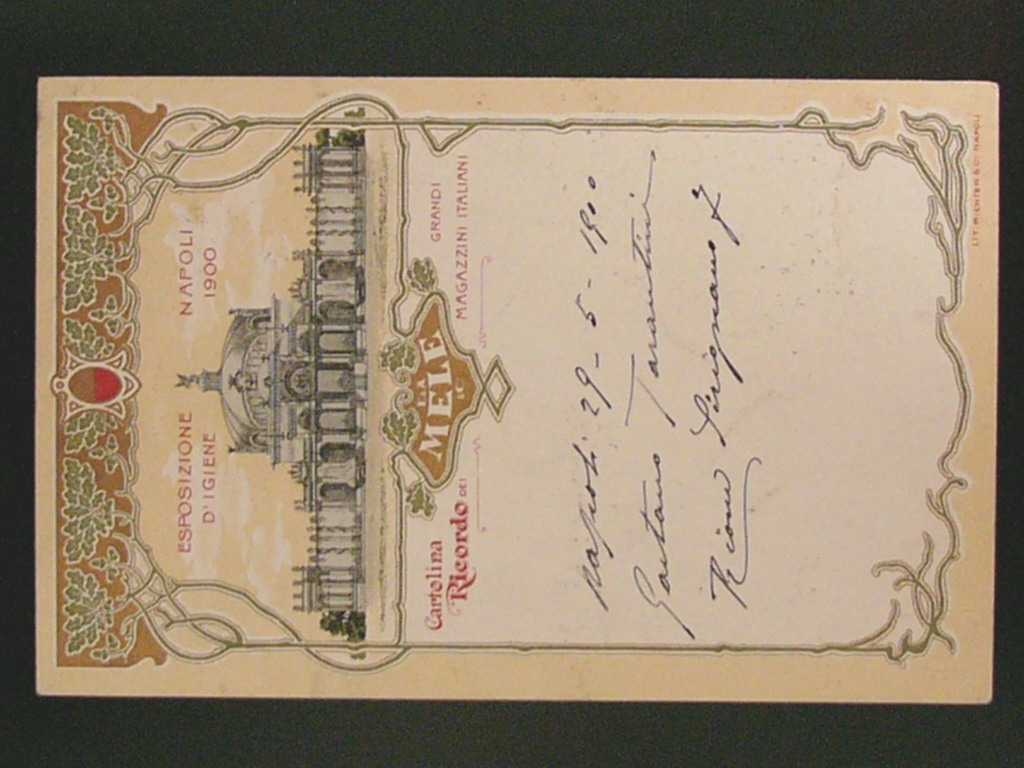 ESPOSIZIONE NAPOLI
D'IGIENE 1900
Cartolina
Ricordo DEI
F.LLI
MELE
& C.
GRANDI
MAGAZZINI ITALIANI
Napoli 29-5-1900
Gaetano Tarantini
Rione Sirignano 7
LIT. RICHTER & C. NAPOLI